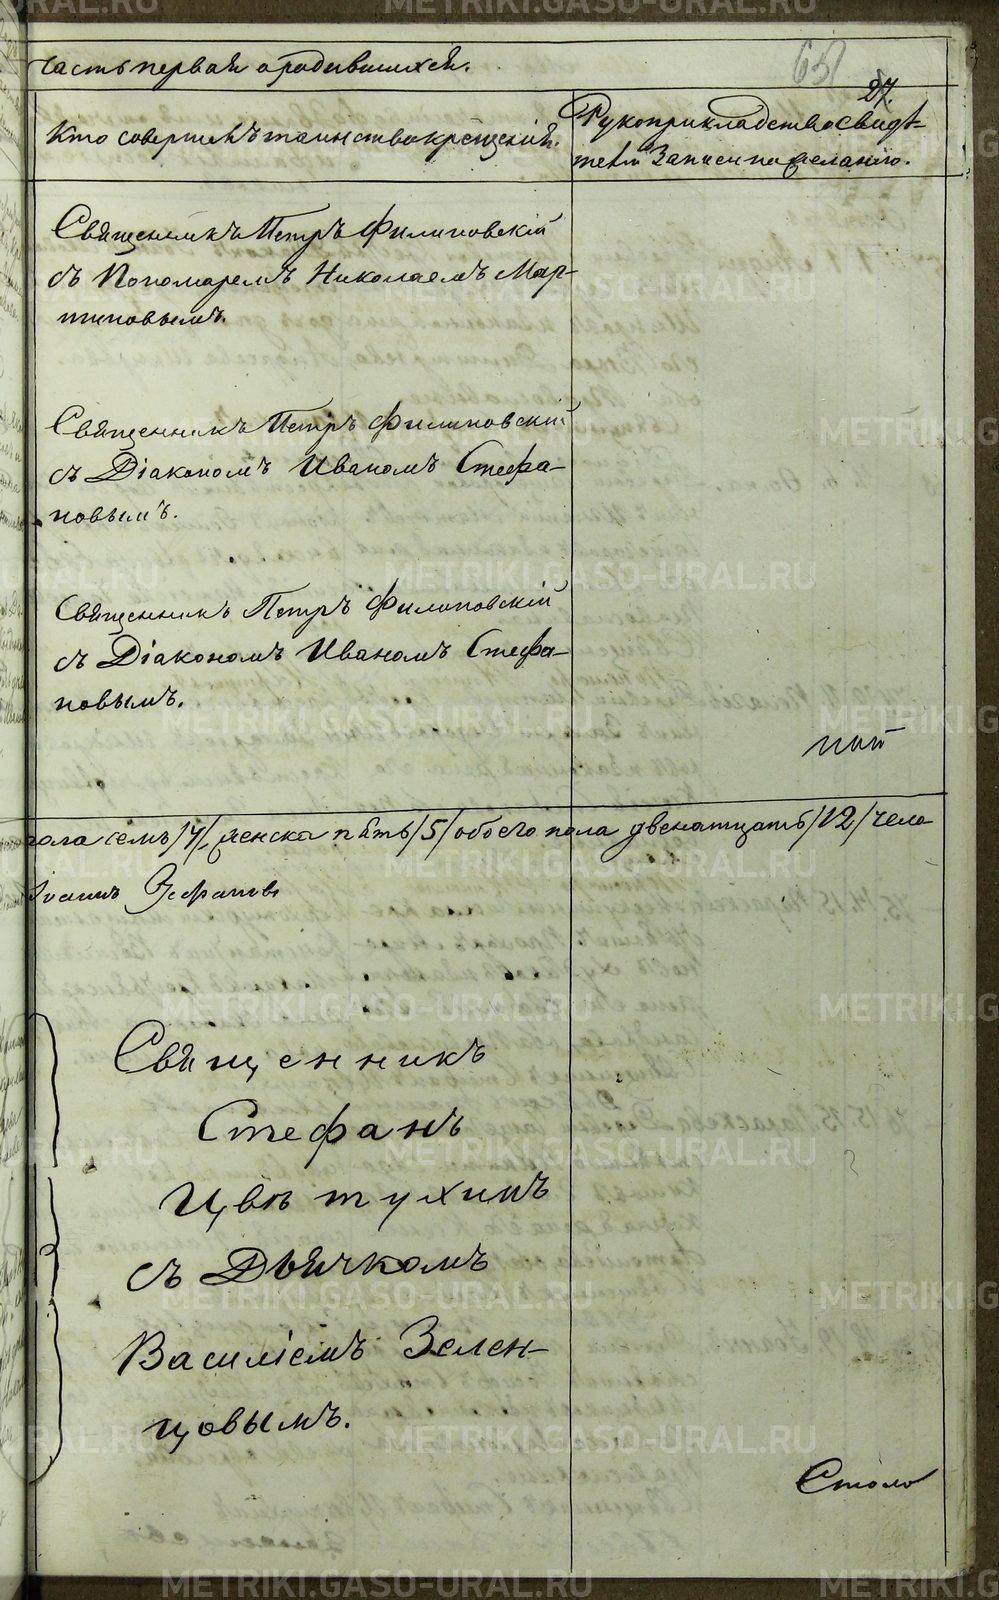 часть первая о родившихся.
27.
Кто совершилъ таинство крещенія.
Рукоприкладство свидѣ-
телей записи по желанію.
Священникъ Петръ Филиповскій
съ Пономаремъ Николаемъ Мар-
тиновымъ.
Священникъ Петръ Филиповскій
съ Діакономъ Иваномъ Стефа-
новымъ.
Священникъ Петръ Филиповскій
съ Діакономъ Иваномъ Стефа-
новымъ.
пола семь /7/, женска пѣть /5/ обоего пола двенатцать /12/ чело
Іоаннъ
Священникъ
Стефанъ
Цвѣтухинъ
съ Дьячкомъ
Василіемъ Зелен-
цовымъ.
METRIKI.GASO-URAL.RU